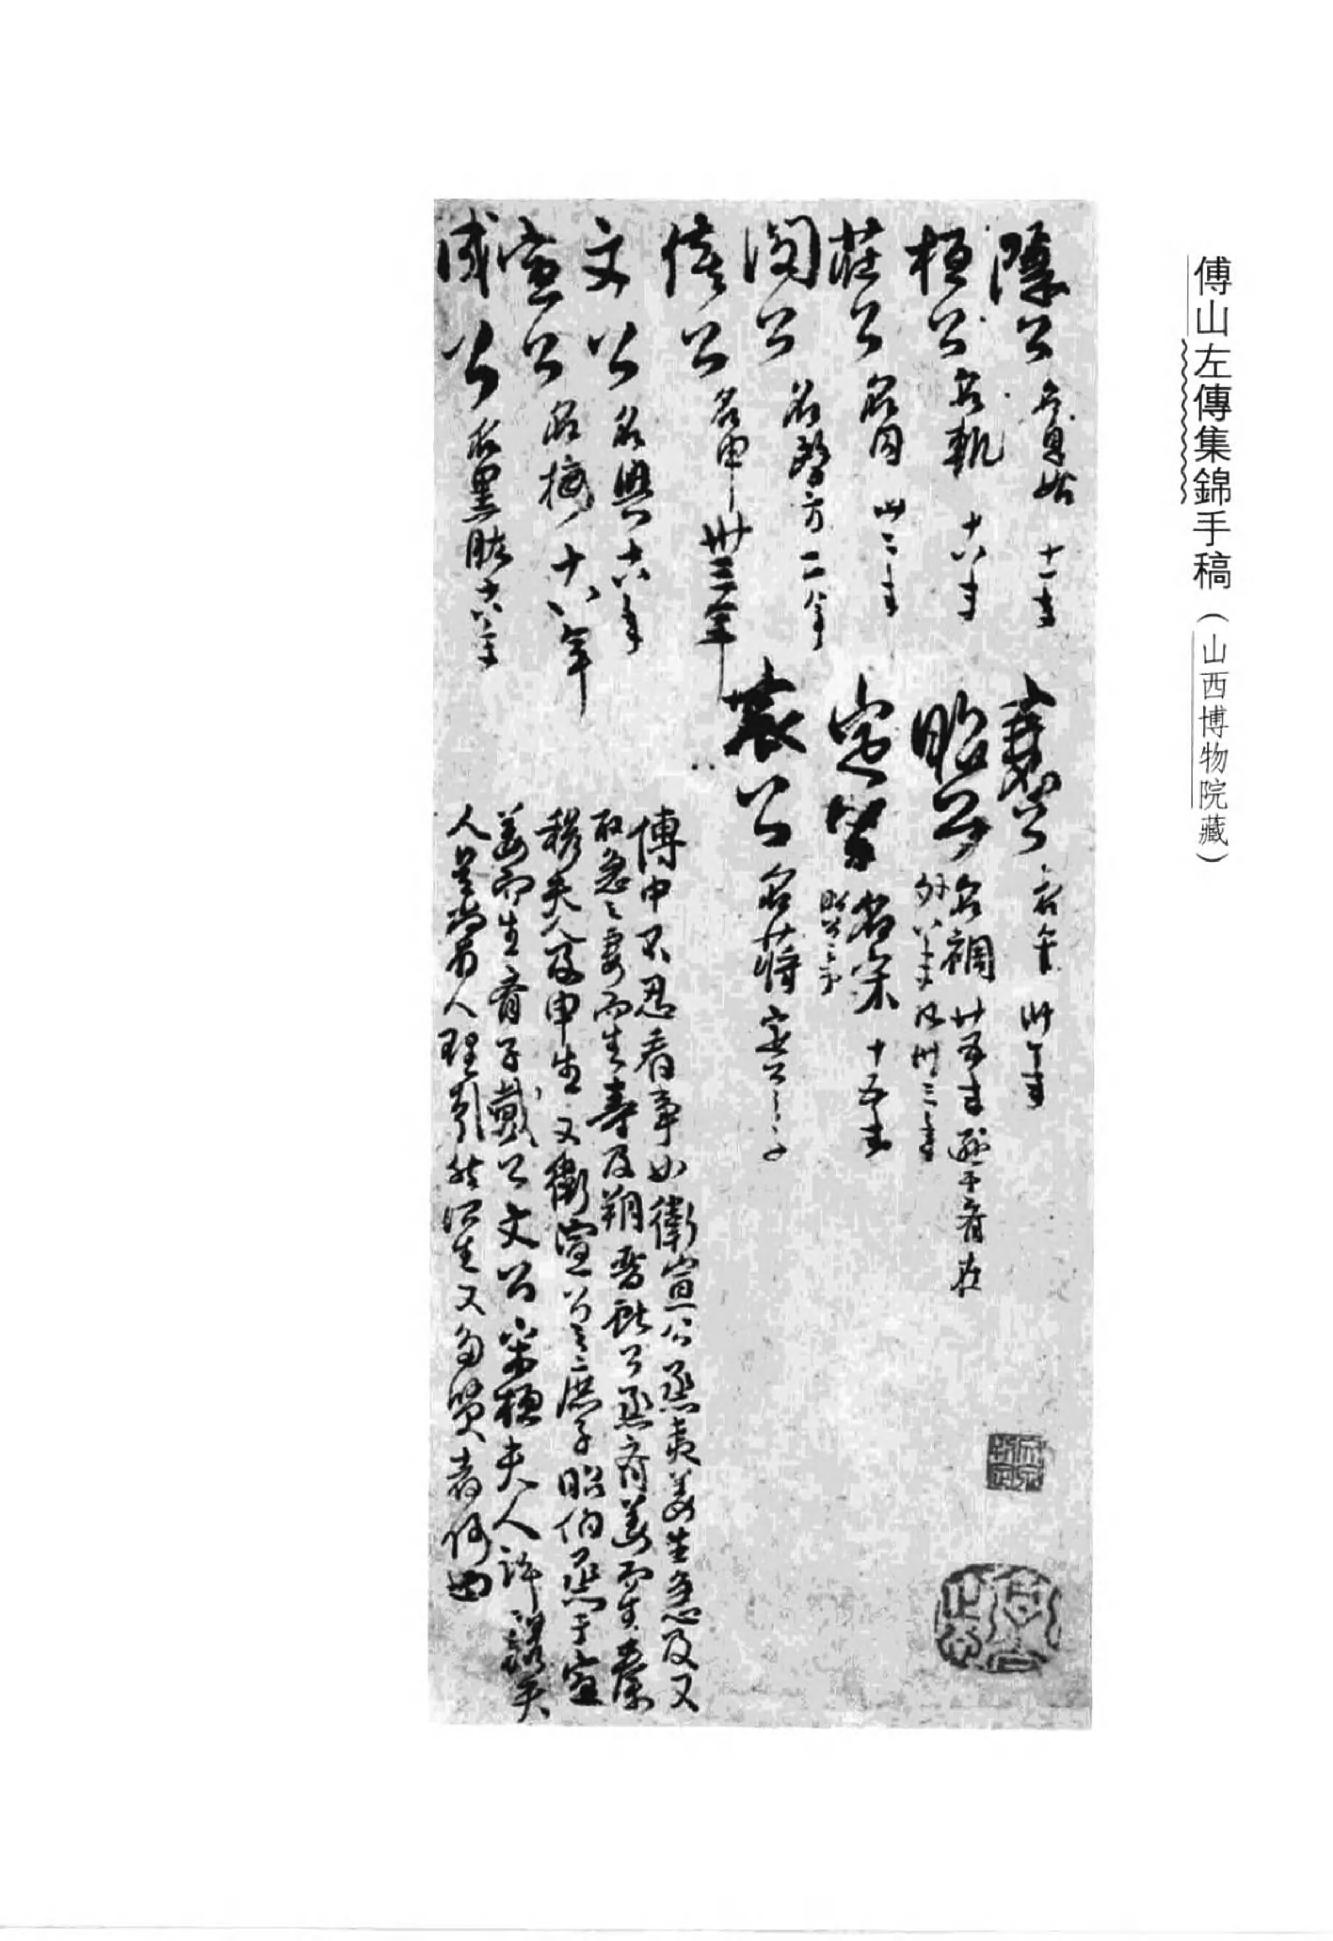 傅山左傳集錦手稿（山西博物院藏）
隱公 名息姑 十一年
桓公 名軌 十八年
莊公 名同 卅二年
閔公 名啓方 二年
僖公 名申 卅三年
文公 名興 十八年
宣公 名 十八年
成公 名黑肱 十八年
襄公 名午 卅一年
昭公 名裯 廿五年 于齊在
外八年 凡卅三年
定公 名宋 十五年
昭公之弟
哀公 名蔣 定公之子
傳中不忍看事如衛宣公烝夷姜生急及又
取急之妻而生壽及朔晉獻公烝齊姜而生秦
穆夫人及申生又衛宣公之庶子昭伯烝于宣
姜而生齊子戴公文公宋桓夫人許穆夫
人是常人理 所生又多賢者何也